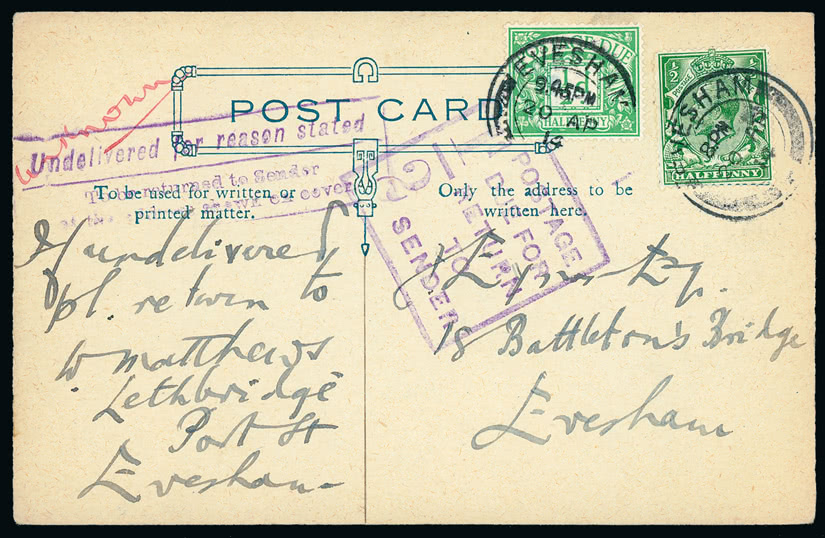 Unknown
POST CARD
Undelivered for reason stated
To be returned to Sender
shown on cover
To be used for written or
printed matter.
Only the address to be
written here.
POSTAGE DUE
HALFPENNY
EVESHAM
9.45 PM
20 AP
14
POSTAGE
½ ½
HALFPENNY
EVESHAM
8 PM
POSTAGE
DUE FOR
RETURN
TO
SENDER
If undelivered
pl. return to
W Matthews
Lethbridge
Port St
Evesham
Esq.
18 Battleton's Bridge
Evesham